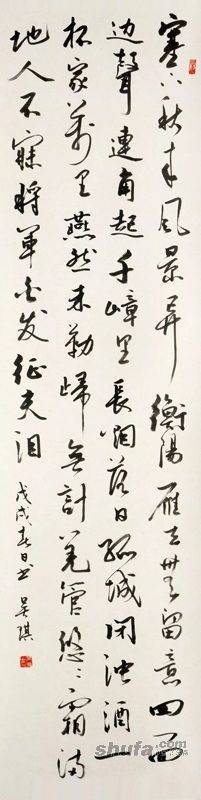 塞下秋来风景异衡陽雁去無留意四面
边聲連角起千嶂里長烟落日孤城闭浊酒一
杯家萬里燕然未勒歸無計羌管悠〻霜满
地人不寐将軍白发征夫泪
戊戌春日书 吴琪
shufa.com